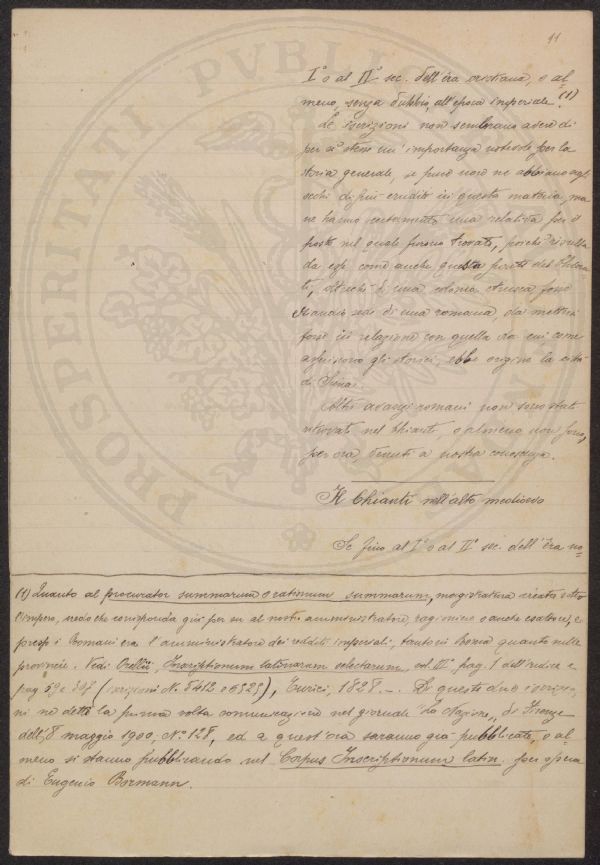 11
I.º o al II.º sec. dell'èra cristiana, o al-
meno, senza dubbio, all'epoca imperiale. (1)
Le iscrizioni non sembrano avere di
per sè stesse un'importanza notevole per la
storia generale, se pure non ne abbiano agli
occhi di più eruditi in questa materia, ma
ne hanno certamente una relativa per il
posto nel quale furono trovate, poichè risulta
da esse come anche questa parte del Chian-
ti, oltrechè di una colonia etrusca fosse
stata sede di una romana, da mettersi
forse in relazione con quella da cui come
asseriscono gli storici, ebbe origine la città
di Siena.
Altri avanzi romani non sono stati
ritrovati nel Chianti, o almeno non sono,
per ora, venuti a nostra conoscenza.
Il Chianti nell'alto medioevo
Se fino al I.º o al II.º sec. dell'èra no-
(1) Quanto al procurator summarum rationum summarum, magistratura creata sotto
l'impero, vedo che corrisponda giù per su al nostro amministratore, ragioniere o anche esattore, e
presso i Romani era l'amministratore dei redditi imperiali, tanto in Roma quanto nelle
provincie. Vedi: Orellii, Inscriptionum latinarum selectarum, vol. III.º pag. 1 dell'indice e
pag. (iscrizioni N. 5412 e 6525), Turici, 1828. — Di queste due iscrizio-
ni ne detti la prima volta comunicazione nel giornale "La Nazione" di Firenze
dell'8 maggio 1900, N.º 128, ed a quest'ora saranno già pubblicate, o al-
meno si stanno pubblicando nel Corpus Inscriptionum latin. per opera
di Eugenio Bormann.
PROSPERITATI PVBLICAE